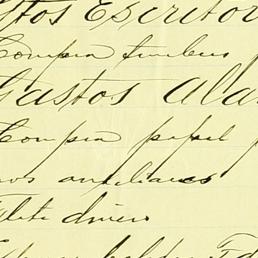 Gtos Escritor
Compra timbres
Gastos Ala
Compra papel p
nos auxiliares
Flete divers